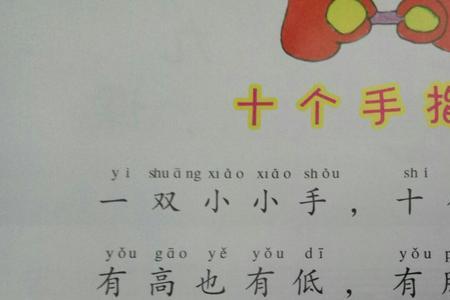 十个手指
yì shuāng xiǎo xiǎo shǒu shí
一双小小手，十
yǒu gāo yě yǒu dī yǒu
有高也有低，有